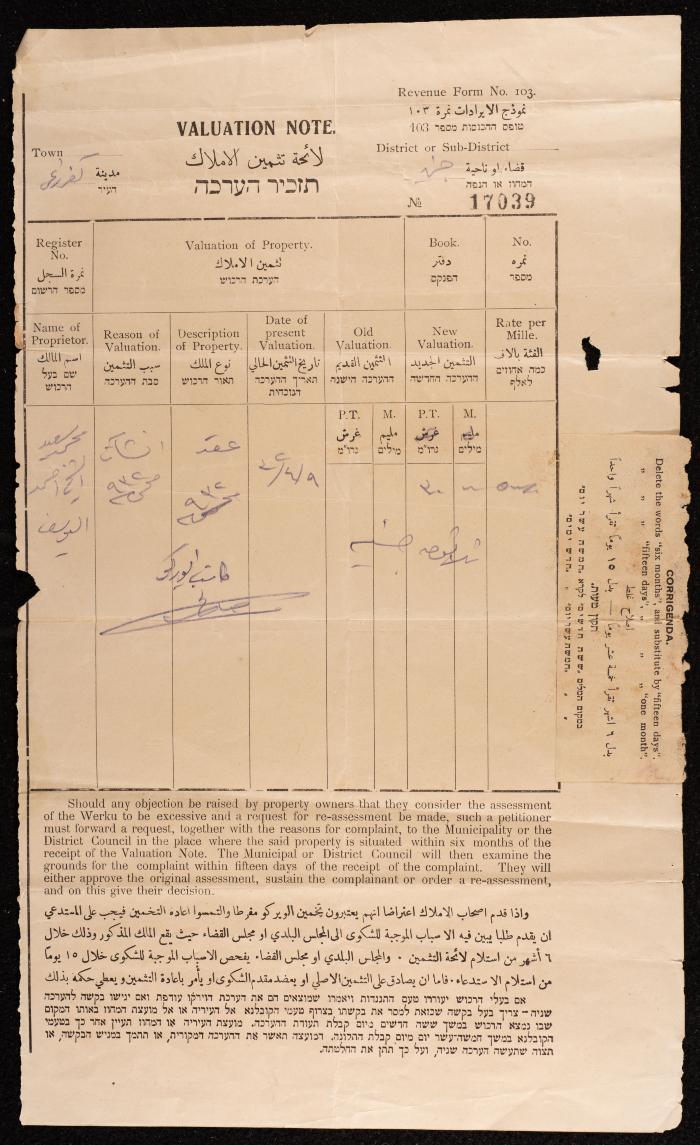 Revenue Form No. 103.
نموذج الايرادات نمرة ١٠٣
טופס ההכנסות מספר 103
VALUATION NOTE.
لائحة تثمين الاملاك
תזכיר הערכה
Town
مدينة
העיר
District or Sub-District
قضاء او ناحية
המחוז או הנפה
№ 17039
Register No.
نمرة السجل
מספר הרשום
Valuation of Property.
تثمين الاملاك
הערכת הרכוש
Book.
دفتر
הפנקס
No.
نمره
מספר
Name of Proprietor.
اسم المالك
שם בעל הרכוש
Reason of Valuation.
سبب التثمين
סבת ההערכה
Description of Property.
نوع الملك
תאור הרכוש
Date of present Valuation.
تاريخ التثمين الحالي
תאריך ההערכה הנוכחית
Old Valuation.
التثمين القديم
ההערכה הישנה
New Valuation.
التثمين الجديد
ההערכה החדשה
Rate per Mille.
الفئة بالالف
כמה אחוזים לאלף
P.T. M. P.T. M.
غرش مليم غرش مليم
גרו"מ מילים גרו"מ מילים
محمد سعيد
الشيخ احمد
اليوسف
٩٣٢
عقد
٩٣٢
٣٠
جنيه
كاتب الويركو
CORRIGENDA.
Delete the words "six months", and substitute by "fifteen days".
" " "fifteen days", " " " "one month".
اصلاح غلط
بدل ٦ اشهر تقرأ خمسة عشر يوماً — بدل ١٥ يوماً تقرأ شهراً واحداً
תקון טעות.
במקום המלים "ששה חדשים" לקרא "חמשה עשר יום"
" " "חמשה עשר יום" " "חדש ימים".
Should any objection be raised by property owners that they consider the assessment
of the Werku to be excessive and a request for re-assessment be made, such a petitioner
must forward a request, together with the reasons for complaint, to the Municipality or the
District Council in the place where the said property is situated within six months of the
receipt of the Valuation Note. The Municipal or District Council will then examine the
grounds for the complaint within fifteen days of the receipt of the complaint. They will
either approve the original assessment, sustain the complainant or order a re-assessment,
and on this give their decision.
واذا قدم اصحاب الاملاك اعتراضا انهم يعتبرون تخمين الويركو مفرطا والتمسوا اعادة التخمين فيجب على المستدعي
ان يقدم طلبا يبين فيه الاسباب الموجبة للشكوى الى المجلس البلدي او مجلس القضاء حيث يقع الملك المذكور وذلك خلال
٦ أشهر من استلام لائحة التثمين ٠ والمجلس البلدي او مجلس القضاء يفحص الاسباب الموجبة للشكوى خلال ١٥ يومًا
من استلام الاستدعاء ٠ فاما ان يصادق على التثمين الاصلي او يعضد مقدم الشكوى او يأمر باعادة التثمين ويعطي حكمه بذلك
אם בעלי הרכוש יעוררו טעם התנגדות ויאמרו שמוצאים הם את הערכת הוירקו עודפת ואם יגישו בקשה להערכה
שניה – צריך בעל בקשה שכזאת למסר את בקשתו בצרוף טעמי הקובלנא אל העיריה או אל מועצת המחוז באותו המקום
שבו נמצא הרכוש במשך ששה חדשים מיום קבלת תעודת ההערכה. מועצת העיריה או המחוז תעיין אחר כך בטעמי
הקובלנא במשך חמשה־עשר יום מיום קבלת התלונה. המועצה תאשר את ההערכה המקורית, או תתמך במגיש הבקשה, או
תצוה שתעשה הערכה שניה, ועל כך תתן את החלטתה.